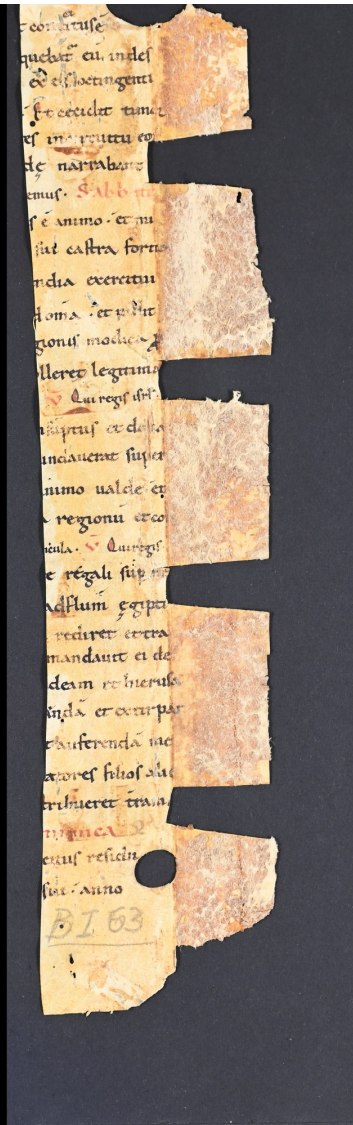 t contrituse
quebat eu indes
ex eis octingenti
Et cecidit timor
es in circuitu eo
de narrabant
emus. Sabb
s e animo. et mi
sue castra forti
ndia exercitui
doma. et p
gionis modica
lleret legitima
V Qui regis isrl.
suptus et de
undauerat super
nimo ualde et
regionu et co
icula. V Qui regis
e regali sup
ad flum egipti
rediret et tra
mandauit ei de
deam et hierusa
enda et extirpan
t auferenda me
atores filios alie
tribueret tram
minica
cius residu
sua. anno
BI 63